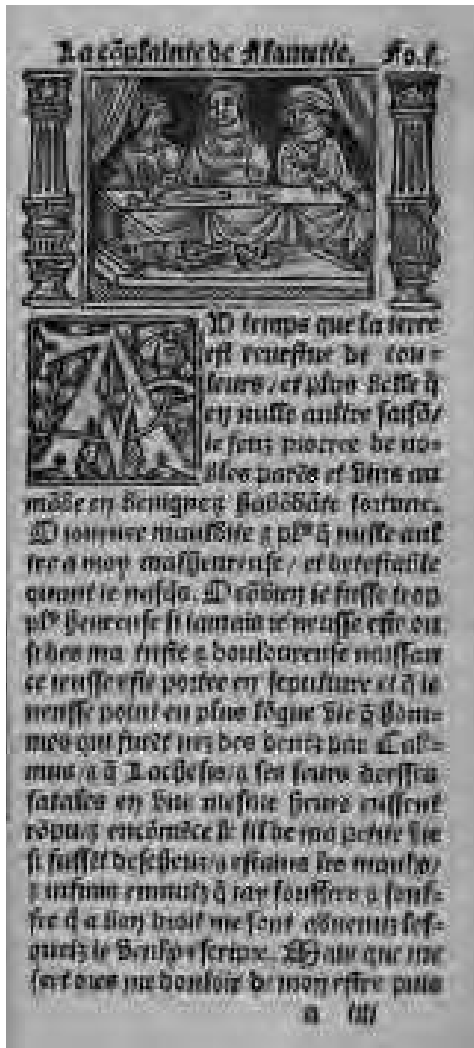 La cõplainte de Flamette. Fo.
AU temps que la terre
est reuestue de cou=
leurs / et plus belle q̃
en nulle aultre saisõ /
ie fuz procree de no=
bles parẽs et vins au
mõde en benigne ⁊ habõdãte fortune.
O iournee mauldite ⁊ plꝰ q̃ nulle aul
tre a moy malheureuse / et detestable
quant ie nasqs. O cõbien ie fusse trop
plꝰ heureuse si iamais ie neusse este ou
si des ma triste ⁊ douloureuse naissan
ce ieusse este portee en sepulture et q̃ ie
neusse point eu plus lõgue vie q̃ hom=
mes qui furẽt nez des dentz par Cad=
mus / ⁊ q̃ Lachesis / ⁊ ses seurs deesses
fatales en vne mesme heure eussent
rõpu / ⁊ encõmẽce le fil de ma petite vie
si fussẽt / ⁊ estains les maulx /
⁊ infinis ennuiz q̃ iay souffers ⁊ souf=
fre q̃ a bon droit me sont aduenuz les=
quelz ie veulx escripre. Mais que me
sert ores me douloir de mon estre puis
a iiii